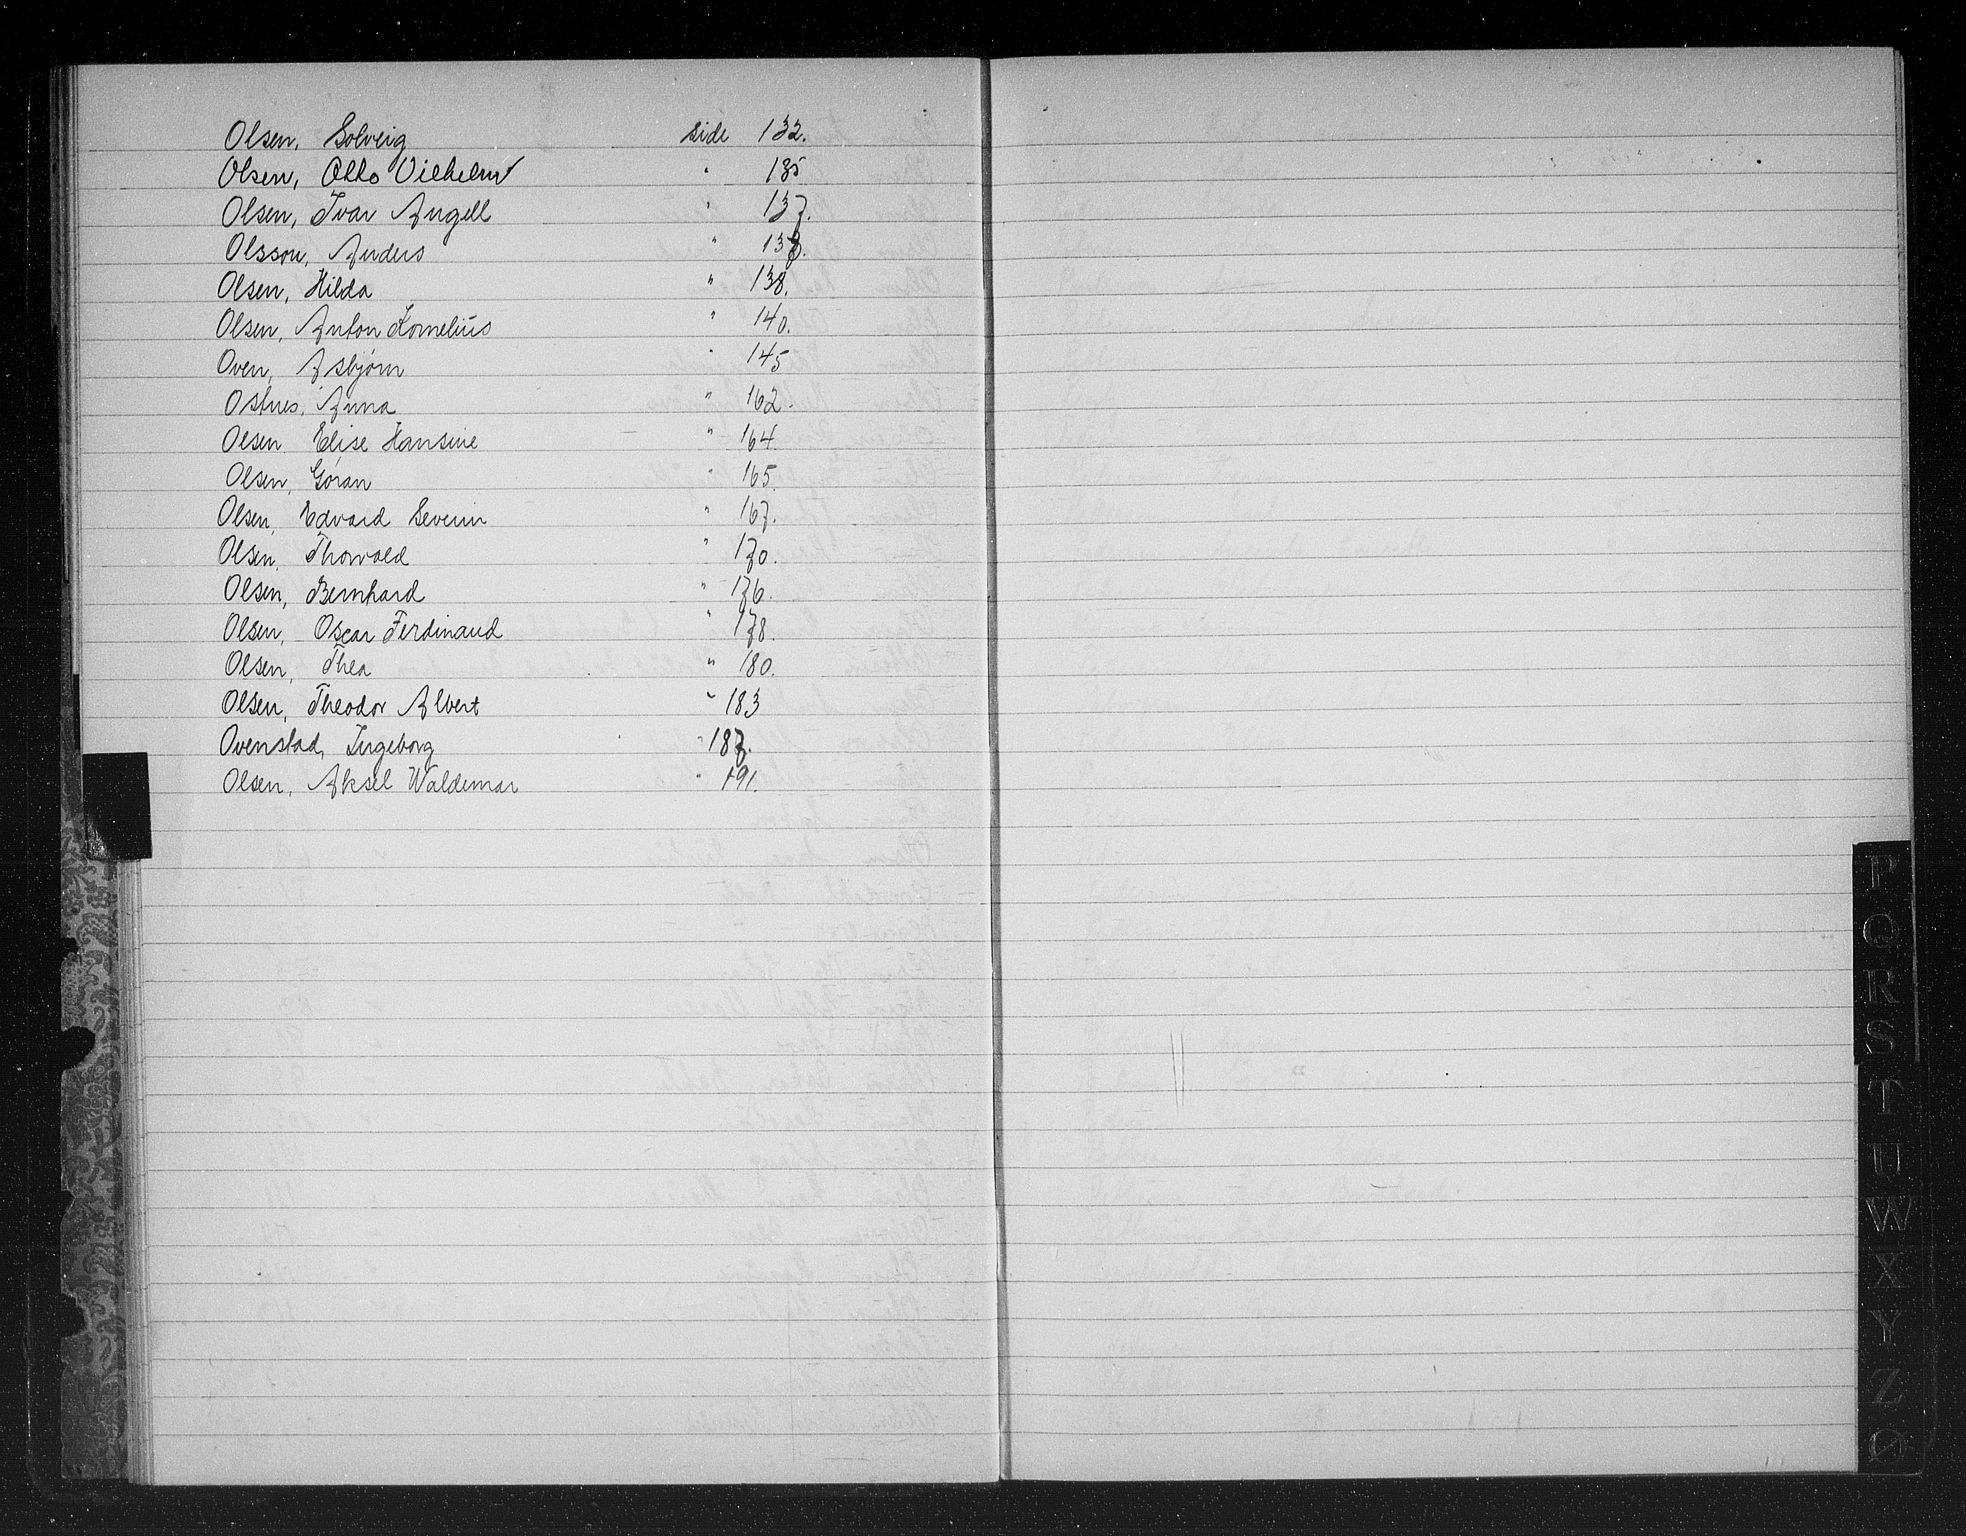 Olsen, Solveig side 132.
Olsen, Otto Vilhelm " 135
Olsen, Ivar Angell " 137.
Olsson, Anders " 137.
Olsen, Hilda " 138.
Olsen, Anton Kornelius " 140.
Oven, Asbjørn " 145
Ostnes, Anna " 162.
Olsen Elise Hansine " 164.
Olsen, Gøran " 165.
Olsen, Edvard Severin " 167.
Olsen, Thorvald " 170.
Olsen, Bernhard " 176.
Olsen, Oscar Ferdinand " 178.
Olsen, Thea " 180.
Olsen, Theodor Albert " 183
Ovenstad, Ingeborg " 187.
Olsen, Aksel Waldemar " 191.
P
Q
R
S
T
U
W
X
Y
Z
Ø